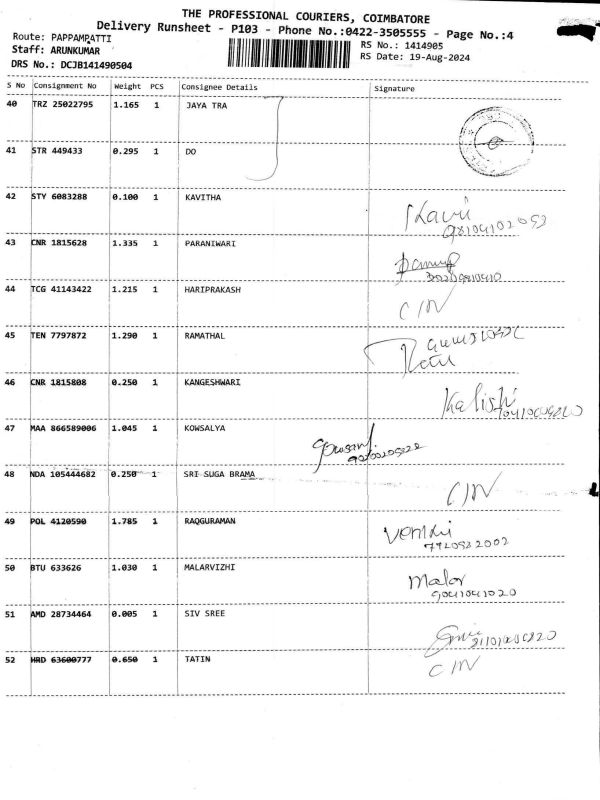 THE PROFESSIONAL COURIERS, COIMBATORE
Delivery Runsheet - P103 - Phone No.:0422-3505555 - Page No.:4
Route: PAPPAMPATTI
Staff: ARUNKUMAR
DRS No.: DCJB141490504
RS No.: 1414905
RS Date: 19-Aug-2024
S No Consignment No Weight PCS Consignee Details Signature
40 TRZ 25022795 1.165 1 JAYA TRA
41 STR 449433 0.295 1 DO
42 STY 6083288 0.100 1 KAVITHA
43 CNR 1815628 1.335 1 PARANIWARI
44 TCG 41143422 1.215 1 HARIPRAKASH
45 TEN 7797872 1.290 1 RAMATHAL
46 CNR 1815808 0.250 1 KANGESHWARI
47 MAA 866589006 1.045 1 KOWSALYA
48 NDA 105444682 0.250 1 SRI SUGA BRAMA
49 POL 4120590 1.785 1 RAQGURAMAN
50 BTU 633626 1.030 1 MALARVIZHI Malar
9041041020
51 AMD 28734464 0.005 1 SIV SREE
52 HRD 63600777 0.650 1 TATIN